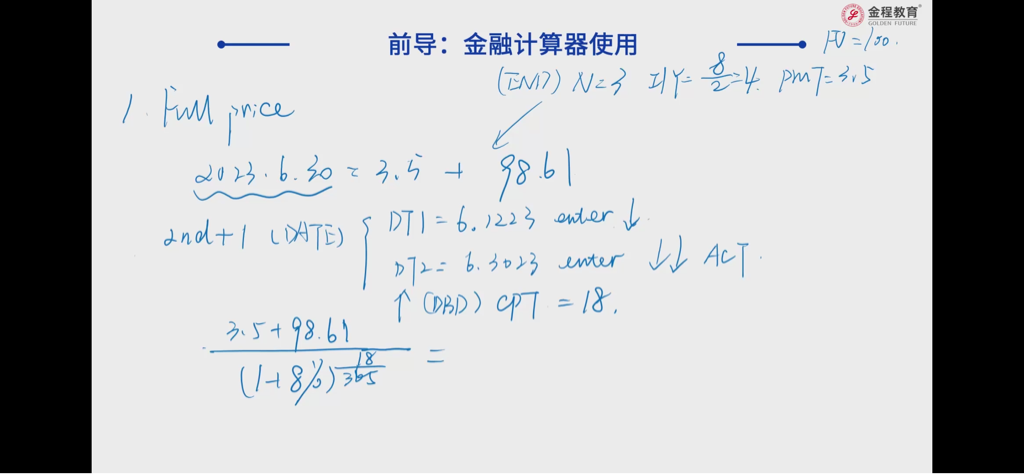 金程教育
GOLDEN FUTURE
前导：金融计算器使用
FV=100.
(END) N=3 I/Y=8/2=4. PMT=3.5
1. Full price
2023.6.30 = 3.5 + 98.61
2nd+1 (DATE) { DT1=6.1223 enter ↓.
DT2=6.3023 enter ↓↓ ACT.
↑ (DBD) CPT = 18.
3.5+98.61
(1+8%)^18/365 =